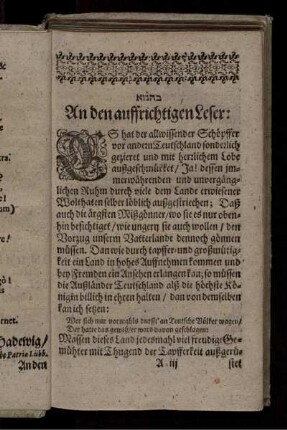 An den auffrichtigen Leser:
ES hat der allwissender Schöpffer
vor andern Teutschland sonderlich
gezieret und mit herrlichem Lobe
außgeschmücket / Ja! dessen im-
merwährenden und unvergäng-
lichen Ruhm durch viele dem Lande erwiesener
Wolthaten selber löblich außgestriechen; Daß
auch die ärgsten Mißgönner, wo sie es nur oben-
hin besichtiget / wie ungern sie auch wollen / den
Vorzug unserm Vatterlande dennoch gönnen
müssen. Dan wie durch tapffer- und großmütig-
keit ein Land in hohes Auffnehmen kommen und
bey Fremden ein Ansehen erlangen kan; so müssen
die Außländer Teutschland alß die höchste Kö-
nigin billich in ehren halten / dan von demselben
kan ich setzen:
Wer sich nur vormahls durfft' an Teutsche Völker wagen /
Der hatte das gewisser ward davon geschlagen:
Massen dieses Land jedesmahl viel freudige Ge-
mühter mit Thugend der Tapfferkeit außgerü-
A iij stet
ernet.
Hadewig /
Patria Lübb.
An den